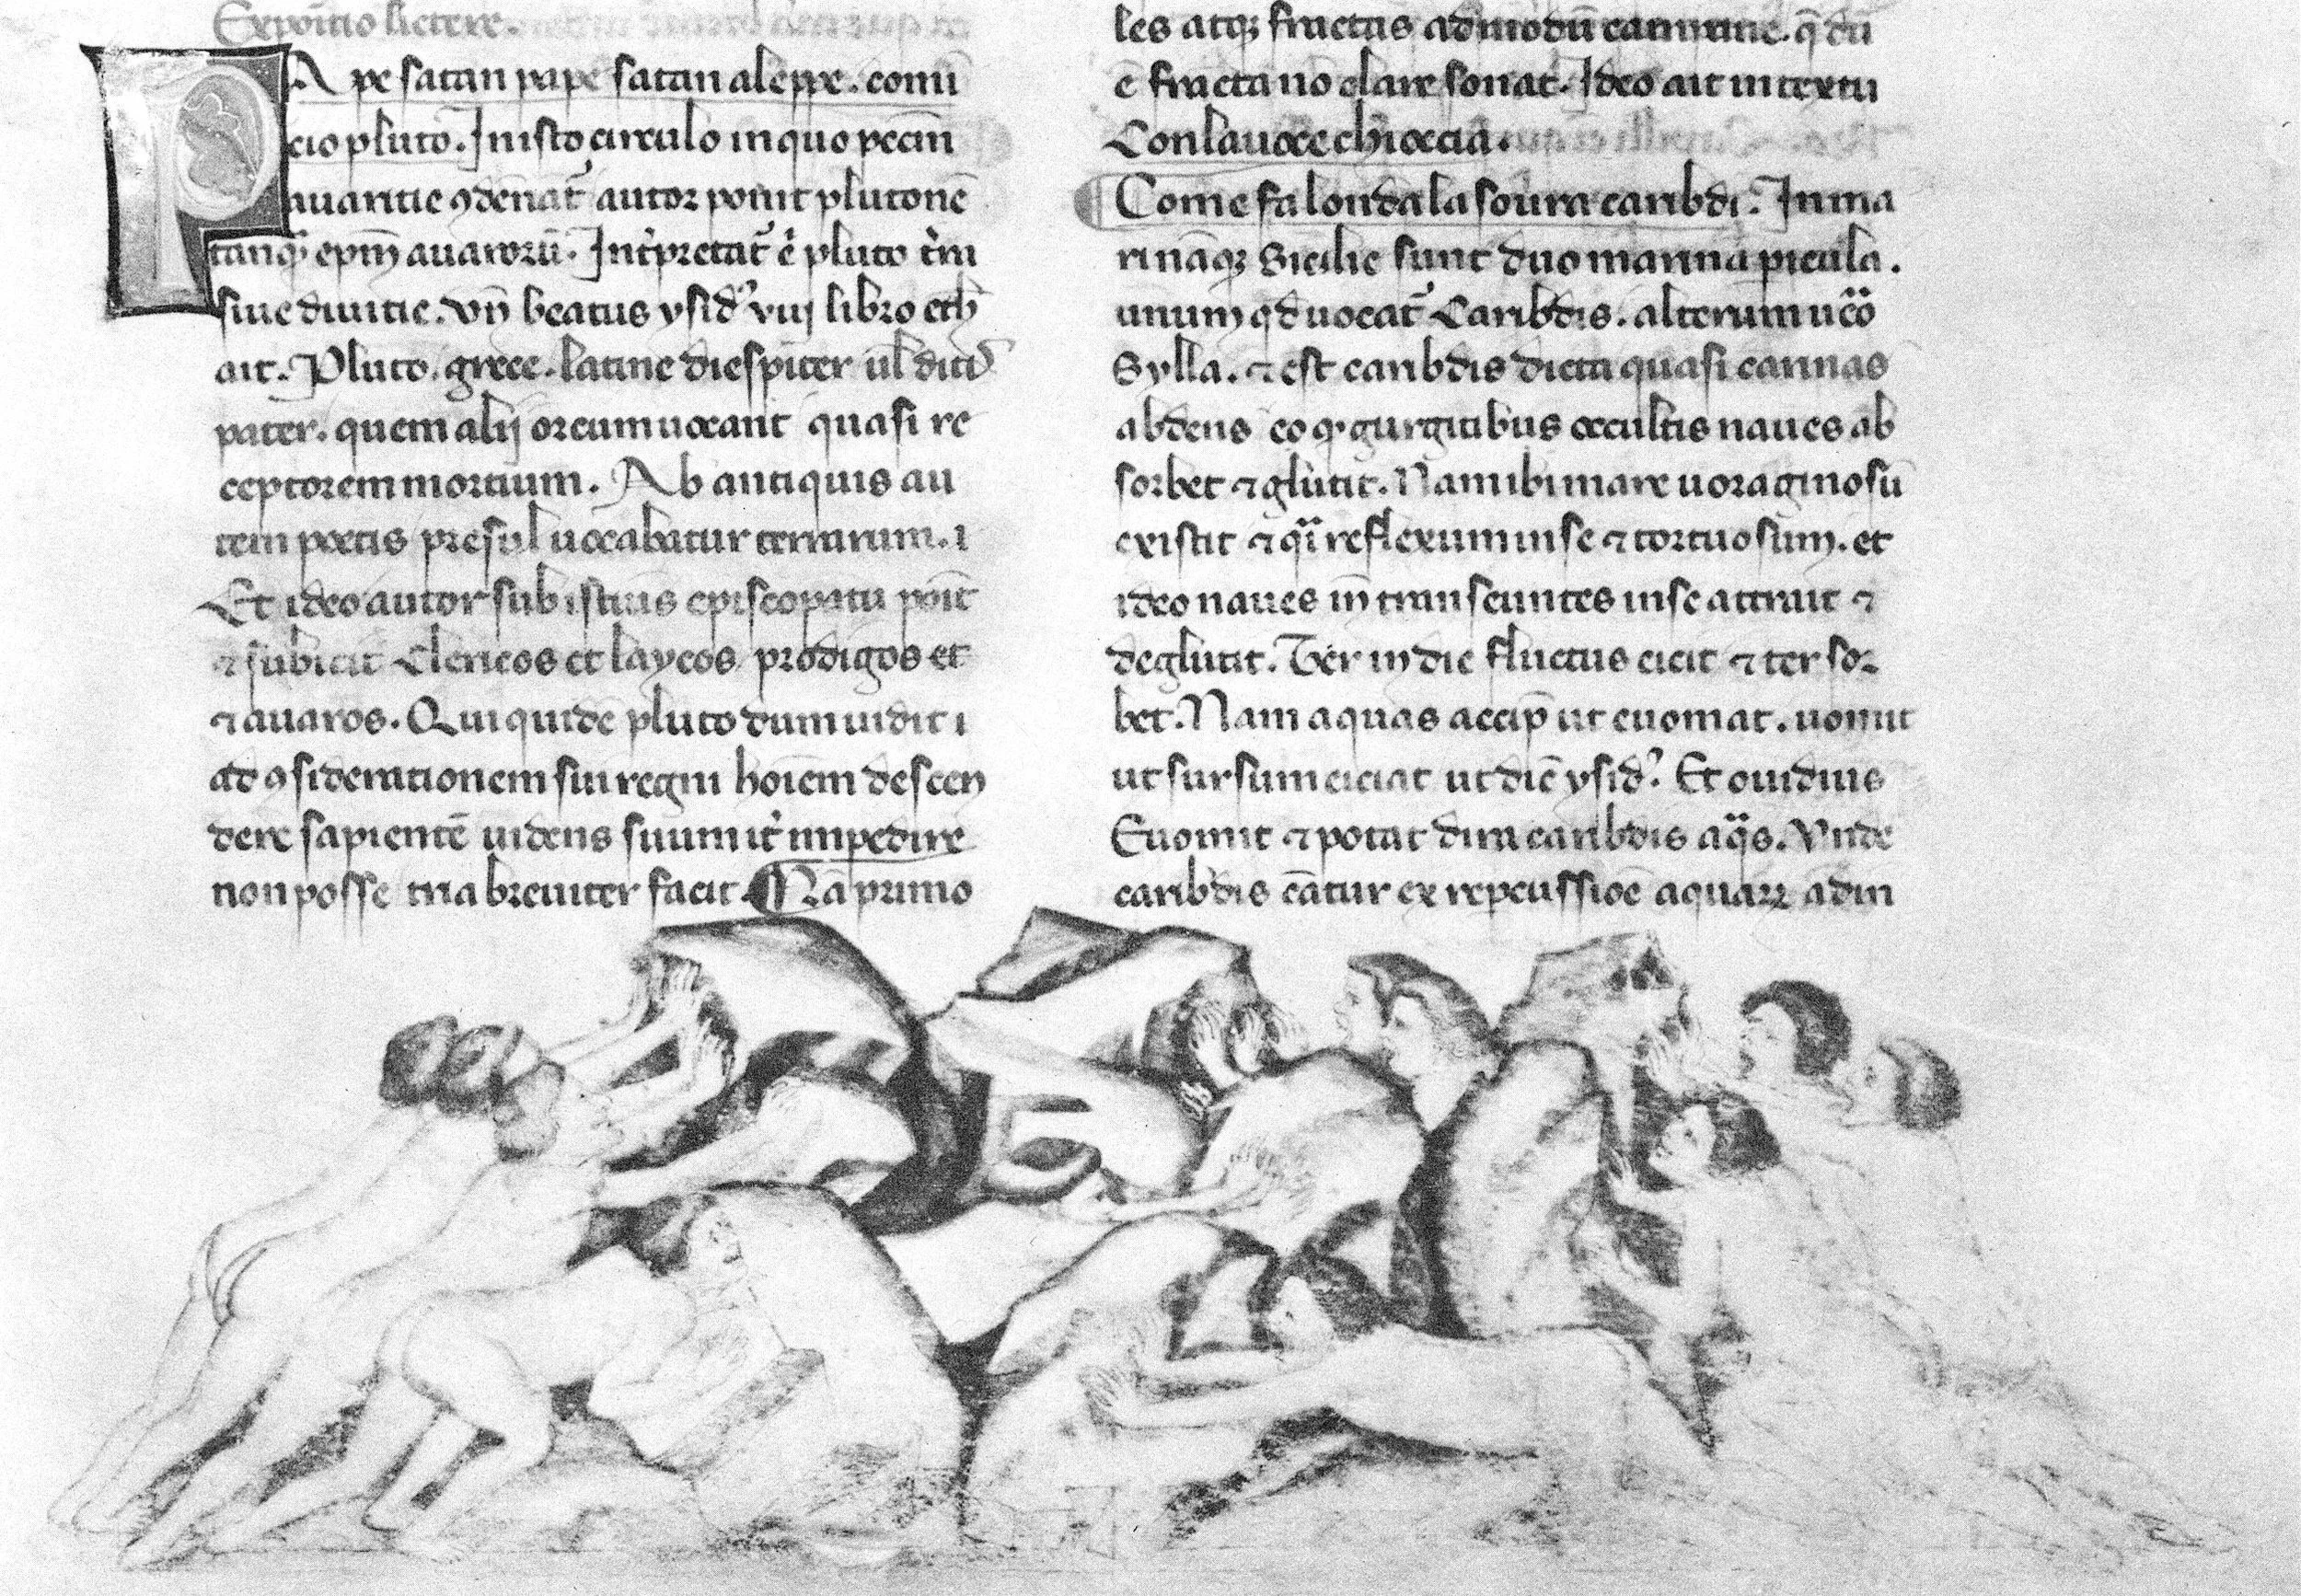 Expoitio lictere.
PApe satan pape satan aleppe. comī
cio pluto. In isto circulo in quo peccm̄
auaritie ꝯdēnat᷑ autor ponit plutonē
tanqȝ epm̄ auarorū. Int̓pretat᷑ ē pluto t̓ra
siue diuitie. vn̄ beatus ysid᷒ viij libro eth
ait. Pluto. grece. latine diespiter ul̓ ditis
pater. quem alij orcum uocant quasi re
ceptorem mortium. Ab antiquis au
tem poetis presul uocabatur terrarum. i
Et ideo autor sub istius episcopatu poīt
⁊ subicit clericos et laycos prodigos et
⁊ auaros. Qui quidē pluto dum uidit i
ad ꝯsiderationem sui regni hoīem descen
dere sapientē uidens suum it̓ impedire
non posse tria breuiter facit. Nā primo
les atqȝ fractus ad modū cannune. q̄ dū
ē fracta nō clare sonat. Ideo ait in textu
Con la uoce chioccia.
Come fa londa la soura caribdi. In ma
rināqȝ Sicilie sunt duo marina picula.
unum qd uocat᷑ Caribdis. alterum uēo
Sylla. ⁊ est caribdis dicta quasi carinas
abdens eo ꝙ gurgitibus occultis naues ab
sorbet ⁊ glutit. Nam ibi mare uoraginosū
existit ⁊ q̈i reflexum in se ⁊ tortuosum. et
ideo naues īn transeuntes in se attrait ⁊
deglutit. Ter in die fluctus eicit ⁊ ter sor
bet. Nam aquas accip̄ ut euomat. uomit
ut sursum eiciat ut diē ysid᷒. Et ouidius
Euomit ⁊ potat dira caribdis aq̈s. Vnde
caribdis cātur ex repcussiōe aquarꝝ adin